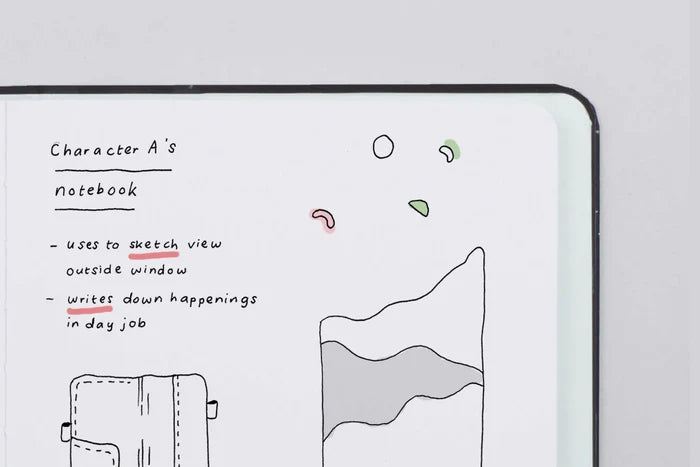 Character A's
notebook
- uses to sketch view
outside window
- writes down happenings
in day job